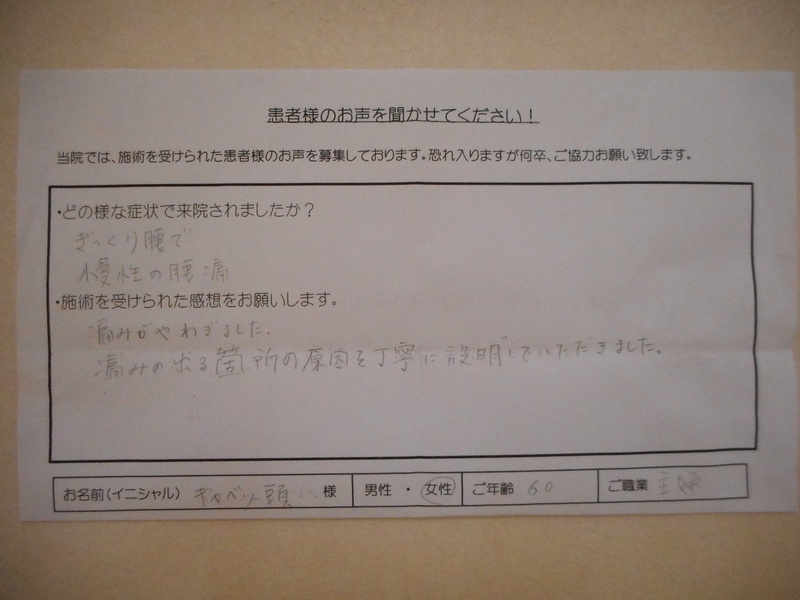 患者様のお声を聞かせてください！
当院では、施術を受けられた患者様のお声を募集しております。恐れ入りますが何卒、ご協力お願い致します。
・どの様な症状で来院されましたか？
ぎっくり腰で
慢性の腰痛
・施術を受けられた感想をお願いします。
痛みがやわぎました.
痛みの出る箇所の原因を丁寧に説明していただきました。
お名前(イニシャル) キャベツ頭 様 男性 ・ 女性 ご年齢 60 ご職業 主婦